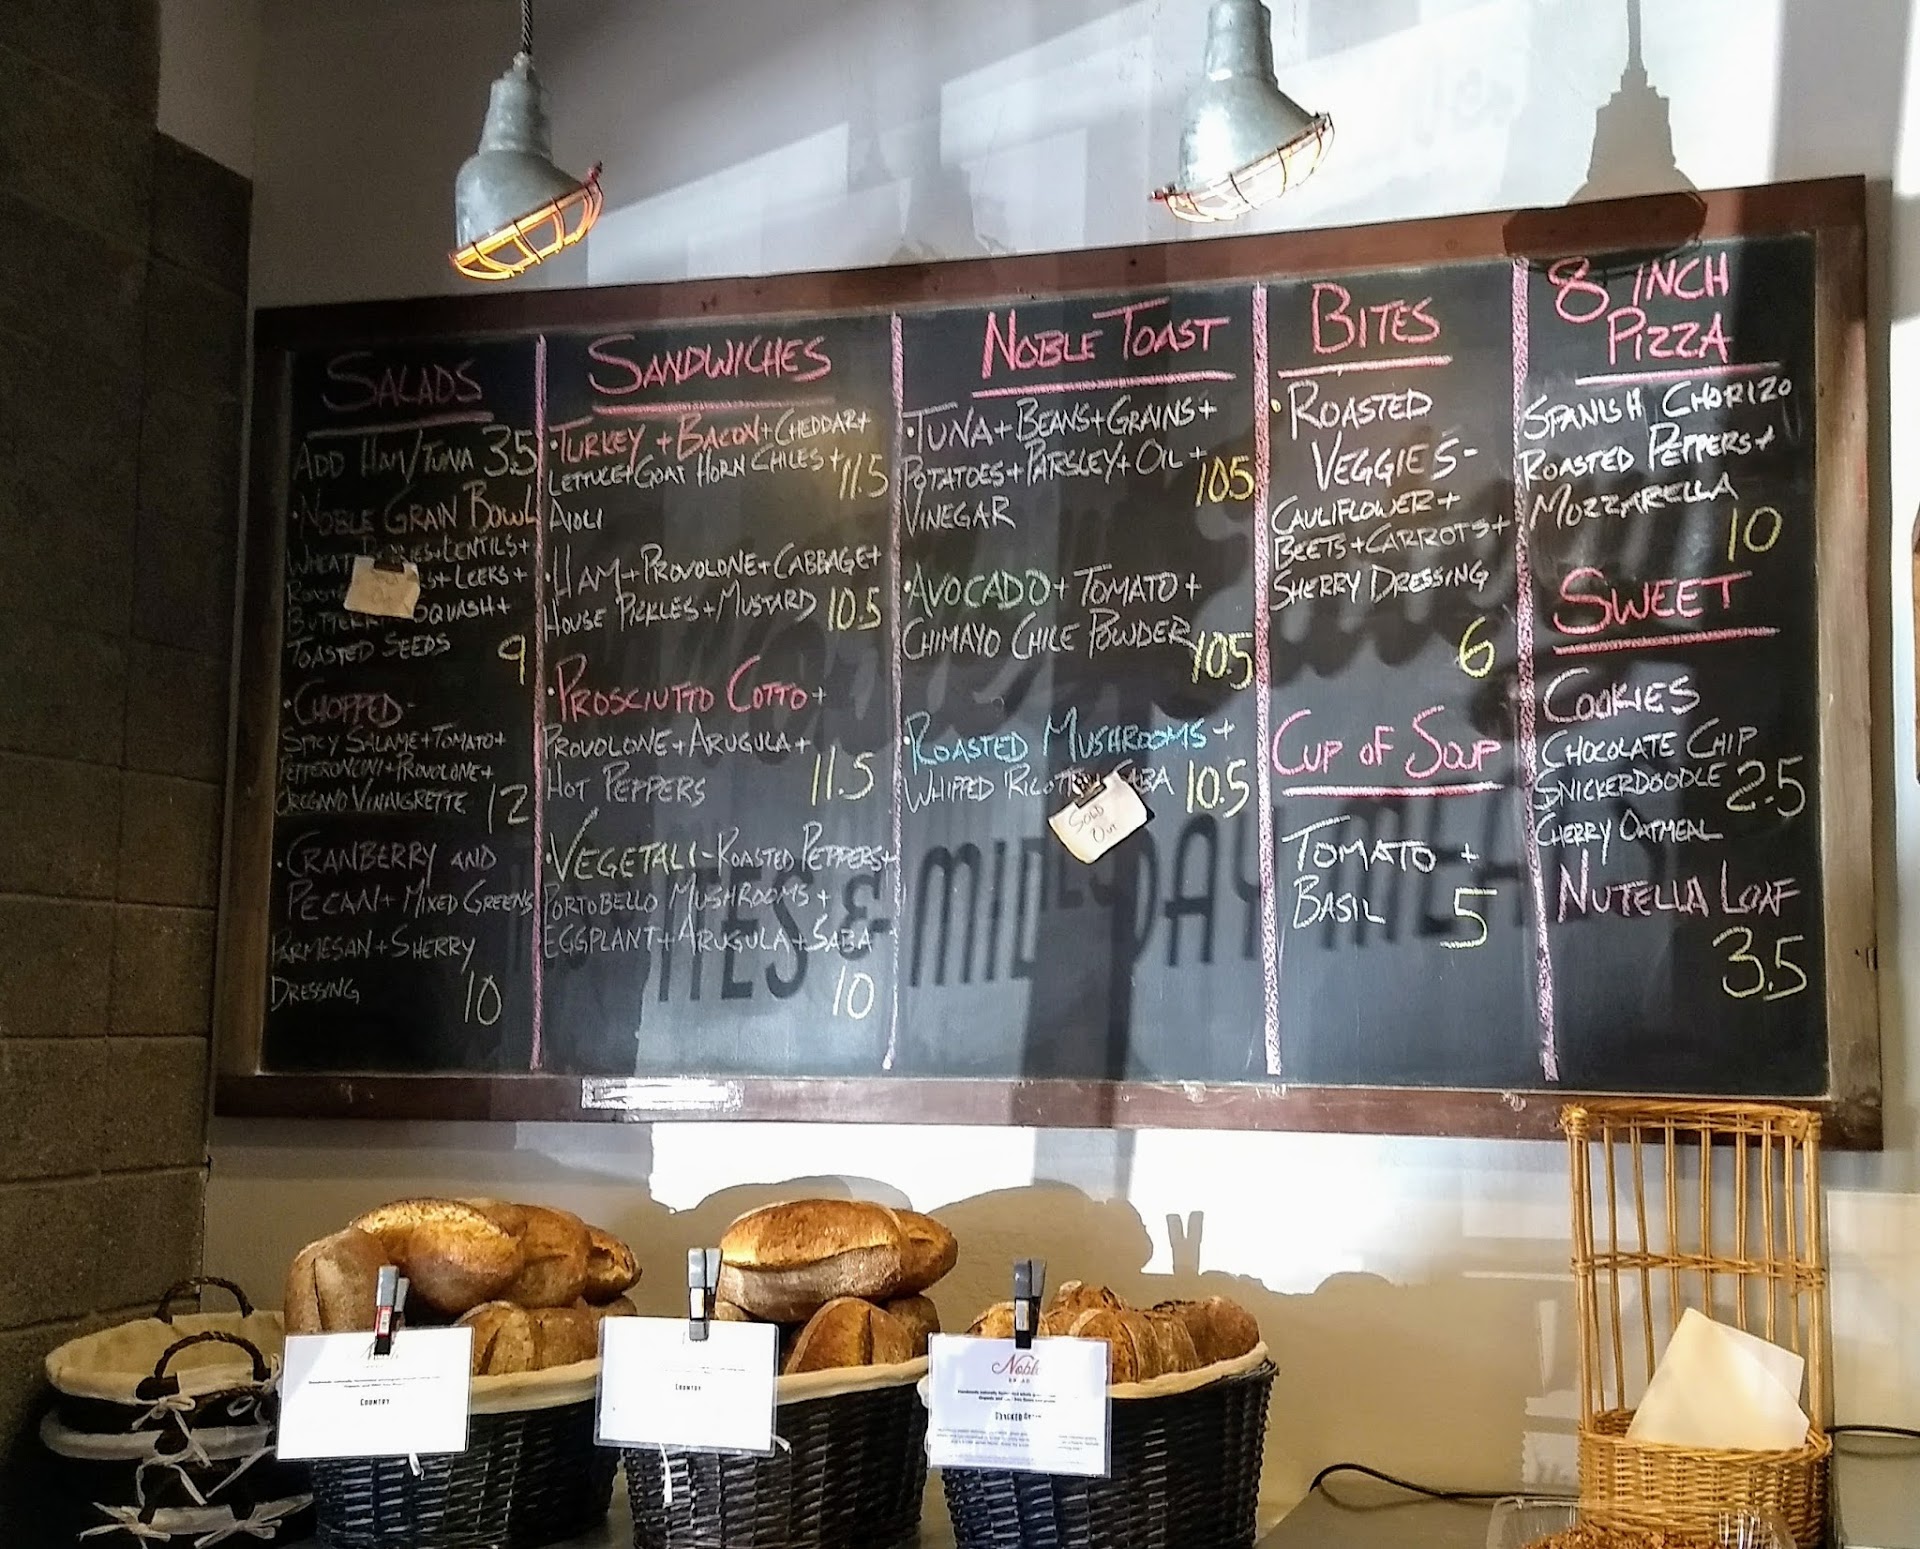 SALADS
ADD HAM/TUNA 3.5
• NOBLE GRAIN BOWL
WHEAT LENTILS+
LEEKS+
SQUASH+
TOASTED SEEDS 9
• CHOPPED-
SPICY SALAME+TOMATO+
PEPPERONCINI+PROVOLONE+
OREGANO VINAIGRETTE 12
• CRANBERRY AND
PECAN+MIXED GREENS
PARMESAN+SHERRY
DRESSING 10
SANDWICHES
• TURKEY+BACON+CHEDDAR+
LETTUCE+GOAT HORN CHILES+ 11.5
AIOLI
• HAM+PROVOLONE+CABBAGE+
HOUSE PICKLES+MUSTARD 10.5
• PROSCIUTTO COTTO+
PROVOLONE+ARUGULA+
HOT PEPPERS 11.5
• VEGETALI-ROASTED PEPPERS+
PORTOBELLO MUSHROOMS+
EGGPLANT+ARUGULA+SABA
10
NOBLE TOAST
• TUNA+BEANS+GRAINS+
POTATOES+PARSLEY+OIL+ 10.5
VINEGAR
• AVOCADO+TOMATO+
CHIMAYO CHILE POWDER 10.5
• ROASTED MUSHROOMS+
WHIPPED RICOTTA SABA 10.5
SOLD
OUT
BITES
• ROASTED
VEGGIES-
CAULIFLOWER+
BEETS+CARROTS+
SHERRY DRESSING
6
CUP OF SOUP
TOMATO+
BASIL 5
8 INCH
PIZZA
SPANISH CHORIZO
ROASTED PEPPERS+
MOZZARELLA
10
SWEET
COOKIES
CHOCOLATE CHIP
SNICKERDOODLE 2.5
CHERRY OATMEAL
NUTELLA LOAF
3.5
& MID DAY MEA
COUNTRY
COUNTRY
Noble